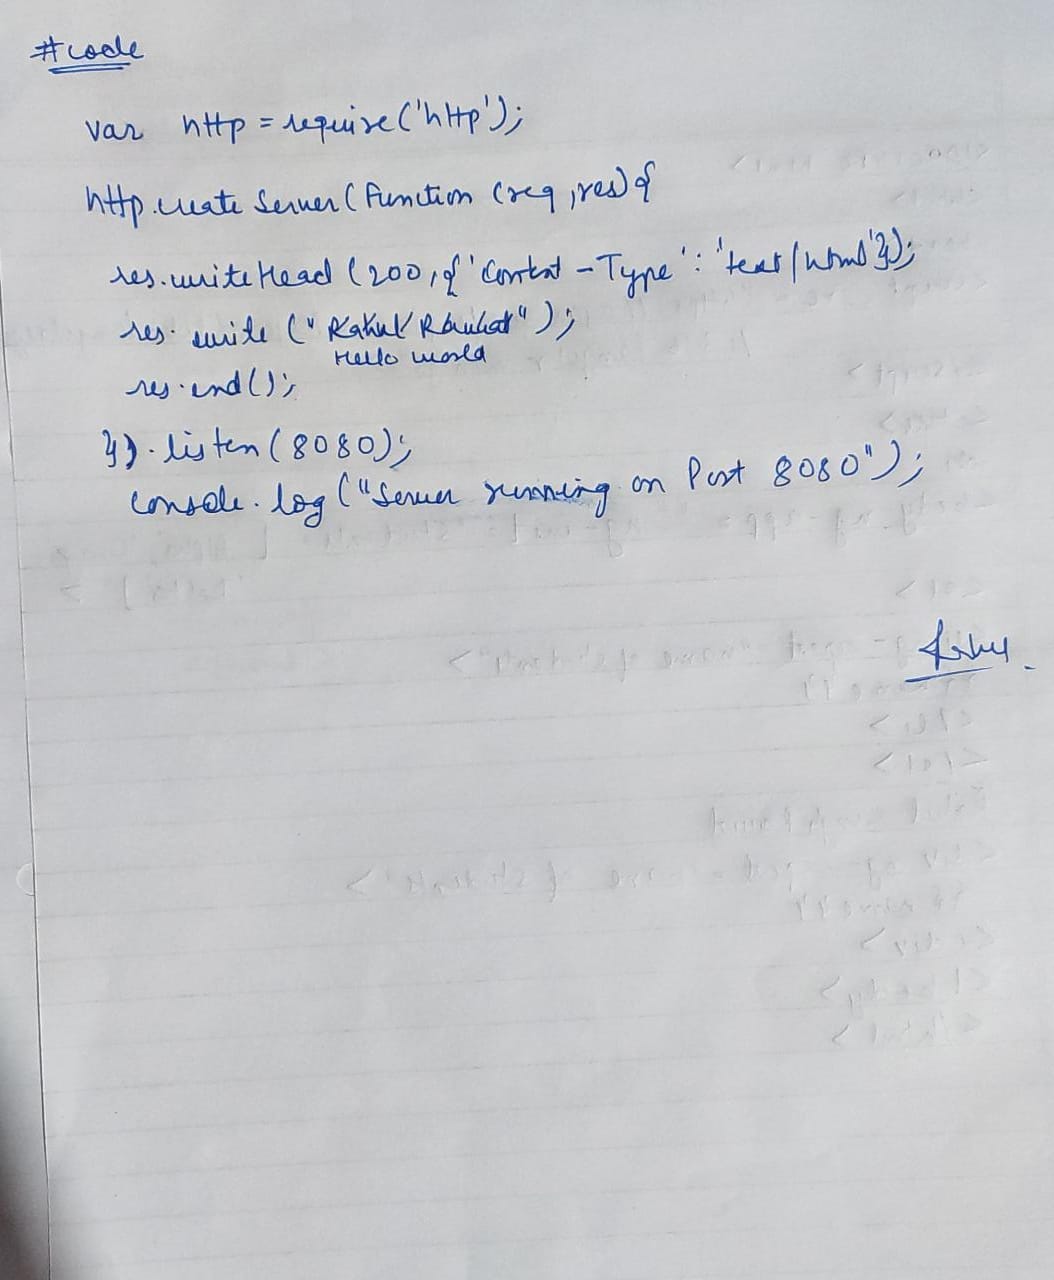 #code
var http = require('http');
http.create Server (function (req, res) {
res.write Head (200, {'Content - Type' : 'text/html'});
res. write (" Rahul ");
Hello world
res.end();
}). listen (8080);
console. log ("Server running on Port 8080");